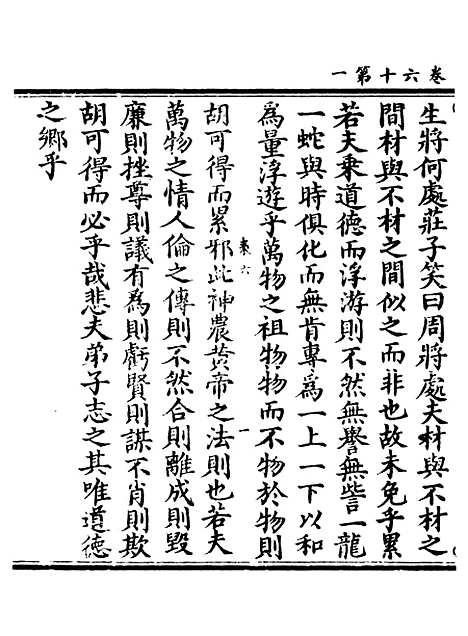 卷六十第一
生將何處莊子笑曰周將處夫材與不材之
間材與不材之間似之而非也故未免乎累
若夫乘道德而浮游則不然無譽無訾一龍
一蛇與時俱化而無肯專爲一上一下以和
爲量浮遊乎萬物之祖物物而不物於物則
胡可得而累邪此神農黄帝之法則也若夫
萬物之情人倫之傳則不然合則離成則毀
廉則挫尊則議有為則虧賢則謀不肖則欺
胡可得而必乎哉悲夫弟子志之其唯道德
之鄉乎
六
一